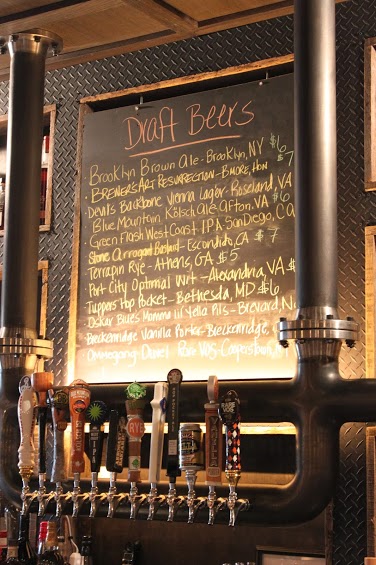 Draft Beers
Brooklyn Brown Ale - Brooklyn, NY $6
Brewer's Art Resurrection - B'more, Hon 7
Devils Backbone Vienna Lager - Roseland, VA
Blue Mountain Kölsch Ale Afton, VA $6
Green Flash West Coast IPA San Diego, CA
Stone Arrogant Bastard - Escondido, CA $7
Terrapin Rye - Athens, GA $5
Port City Optimal Wit - Alexandria, VA $
Tuppers Hop Pocket - Bethesda, MD $6
Oskar Blues Momma lil Yella Pils - Brevard N
Breckenridge Vanilla Porter - Breckenridge,
Ommegang
RYE